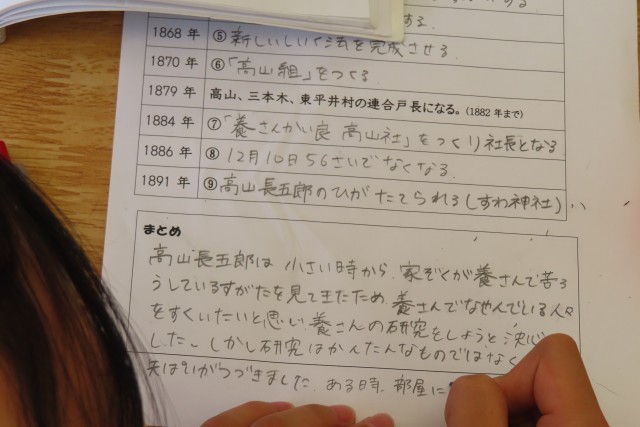 する。
1868 年 ⑤新しいしいく法を完成させる.
1870 年 ⑥「高山組」をつくる
1879 年 高山、三本木、東平井村の連合戸長になる。(1882 年まで)
1884 年 ⑦「養さんかい良 高山社」をつくり社長となる
1886 年 ⑧ 12月10日56さいでなくなる.
1891 年 ⑨高山長五郎のひがたてられる(すわ神社)
まとめ
高山長五郎は 小さい時から、家ぞくが養さんで苦ろ
うしているすがたを見てきたため 養さんでなやんでいる人々
をすくいたいと思い 養さんの研究をしようと決心
した。しかし研究はかんたんなものではなく
失ぱいがつづきました。ある時、部屋に